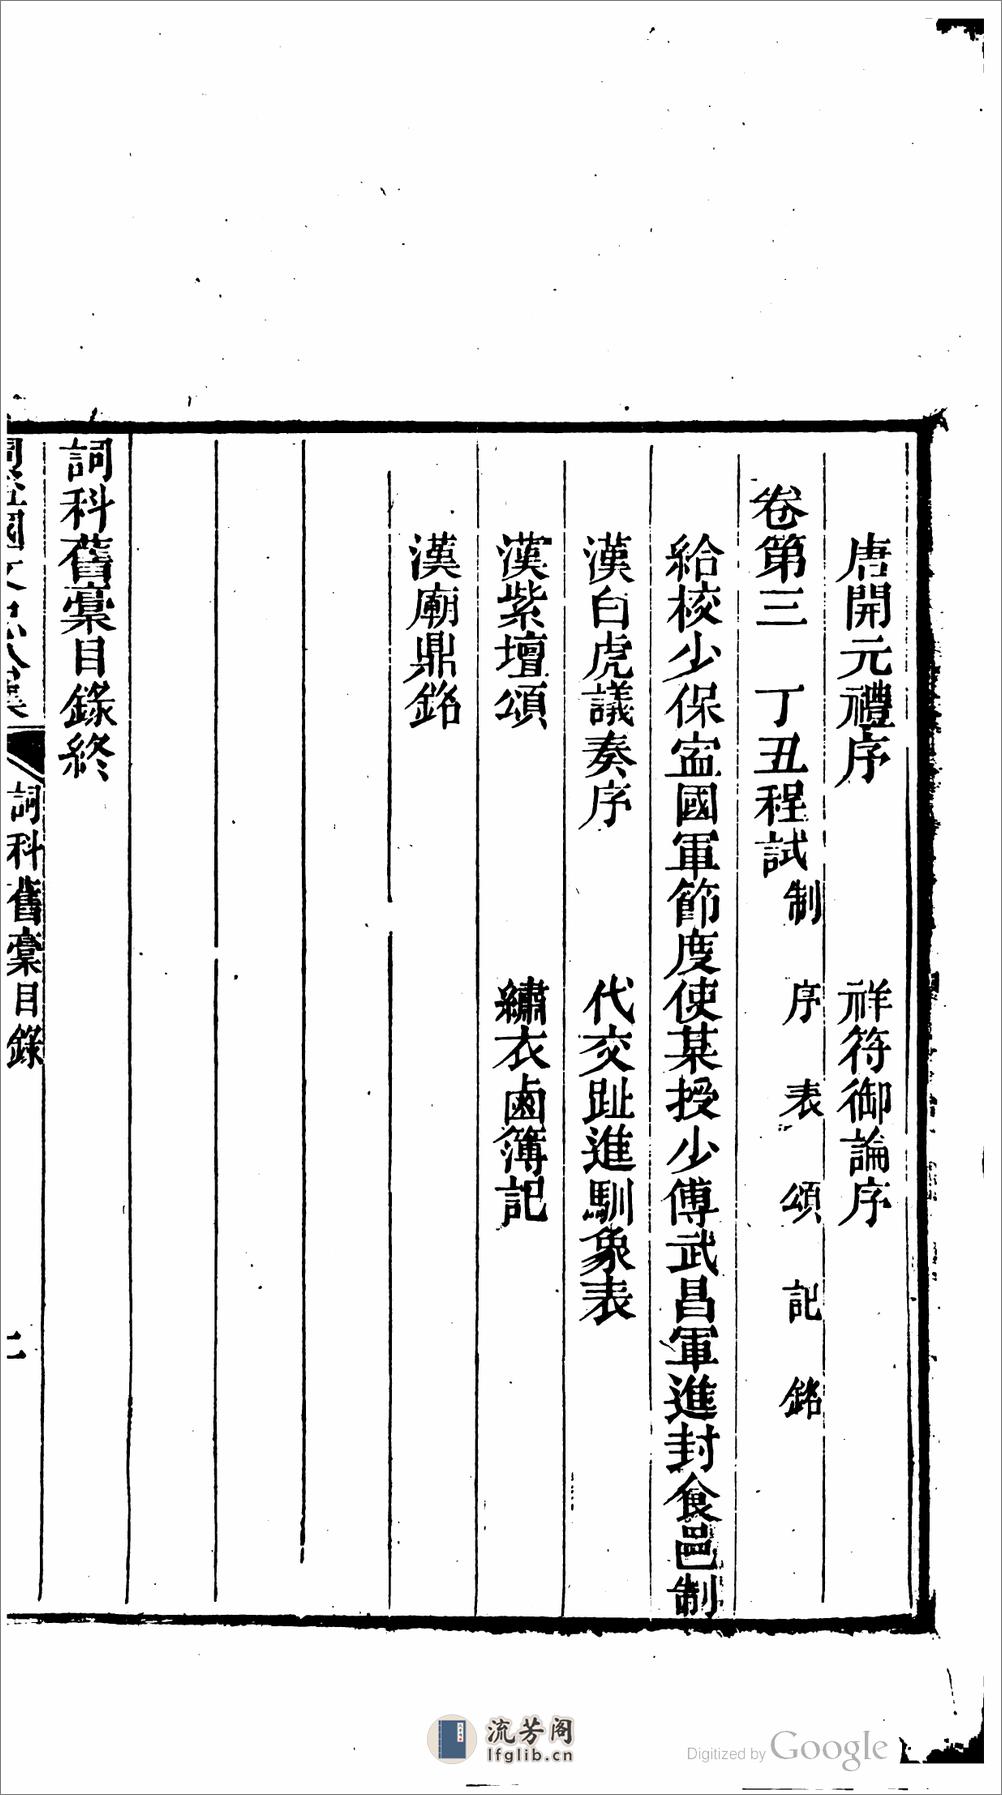 唐開元禮序　祥符御論序
卷第三　丁丑程試制　序　表　頌　記　銘
給校少保寍國軍節度使某授少傅武昌軍進封食邑制
漢白虎議奏序　代交趾進馴象表
漢紫壇頌　繡衣鹵簿記
漢廟鼎銘
詞科舊稾目錄終
周益國文忠公集　詞科舊稾目錄
流芳阁
lfglib.cn
Digitized by Google